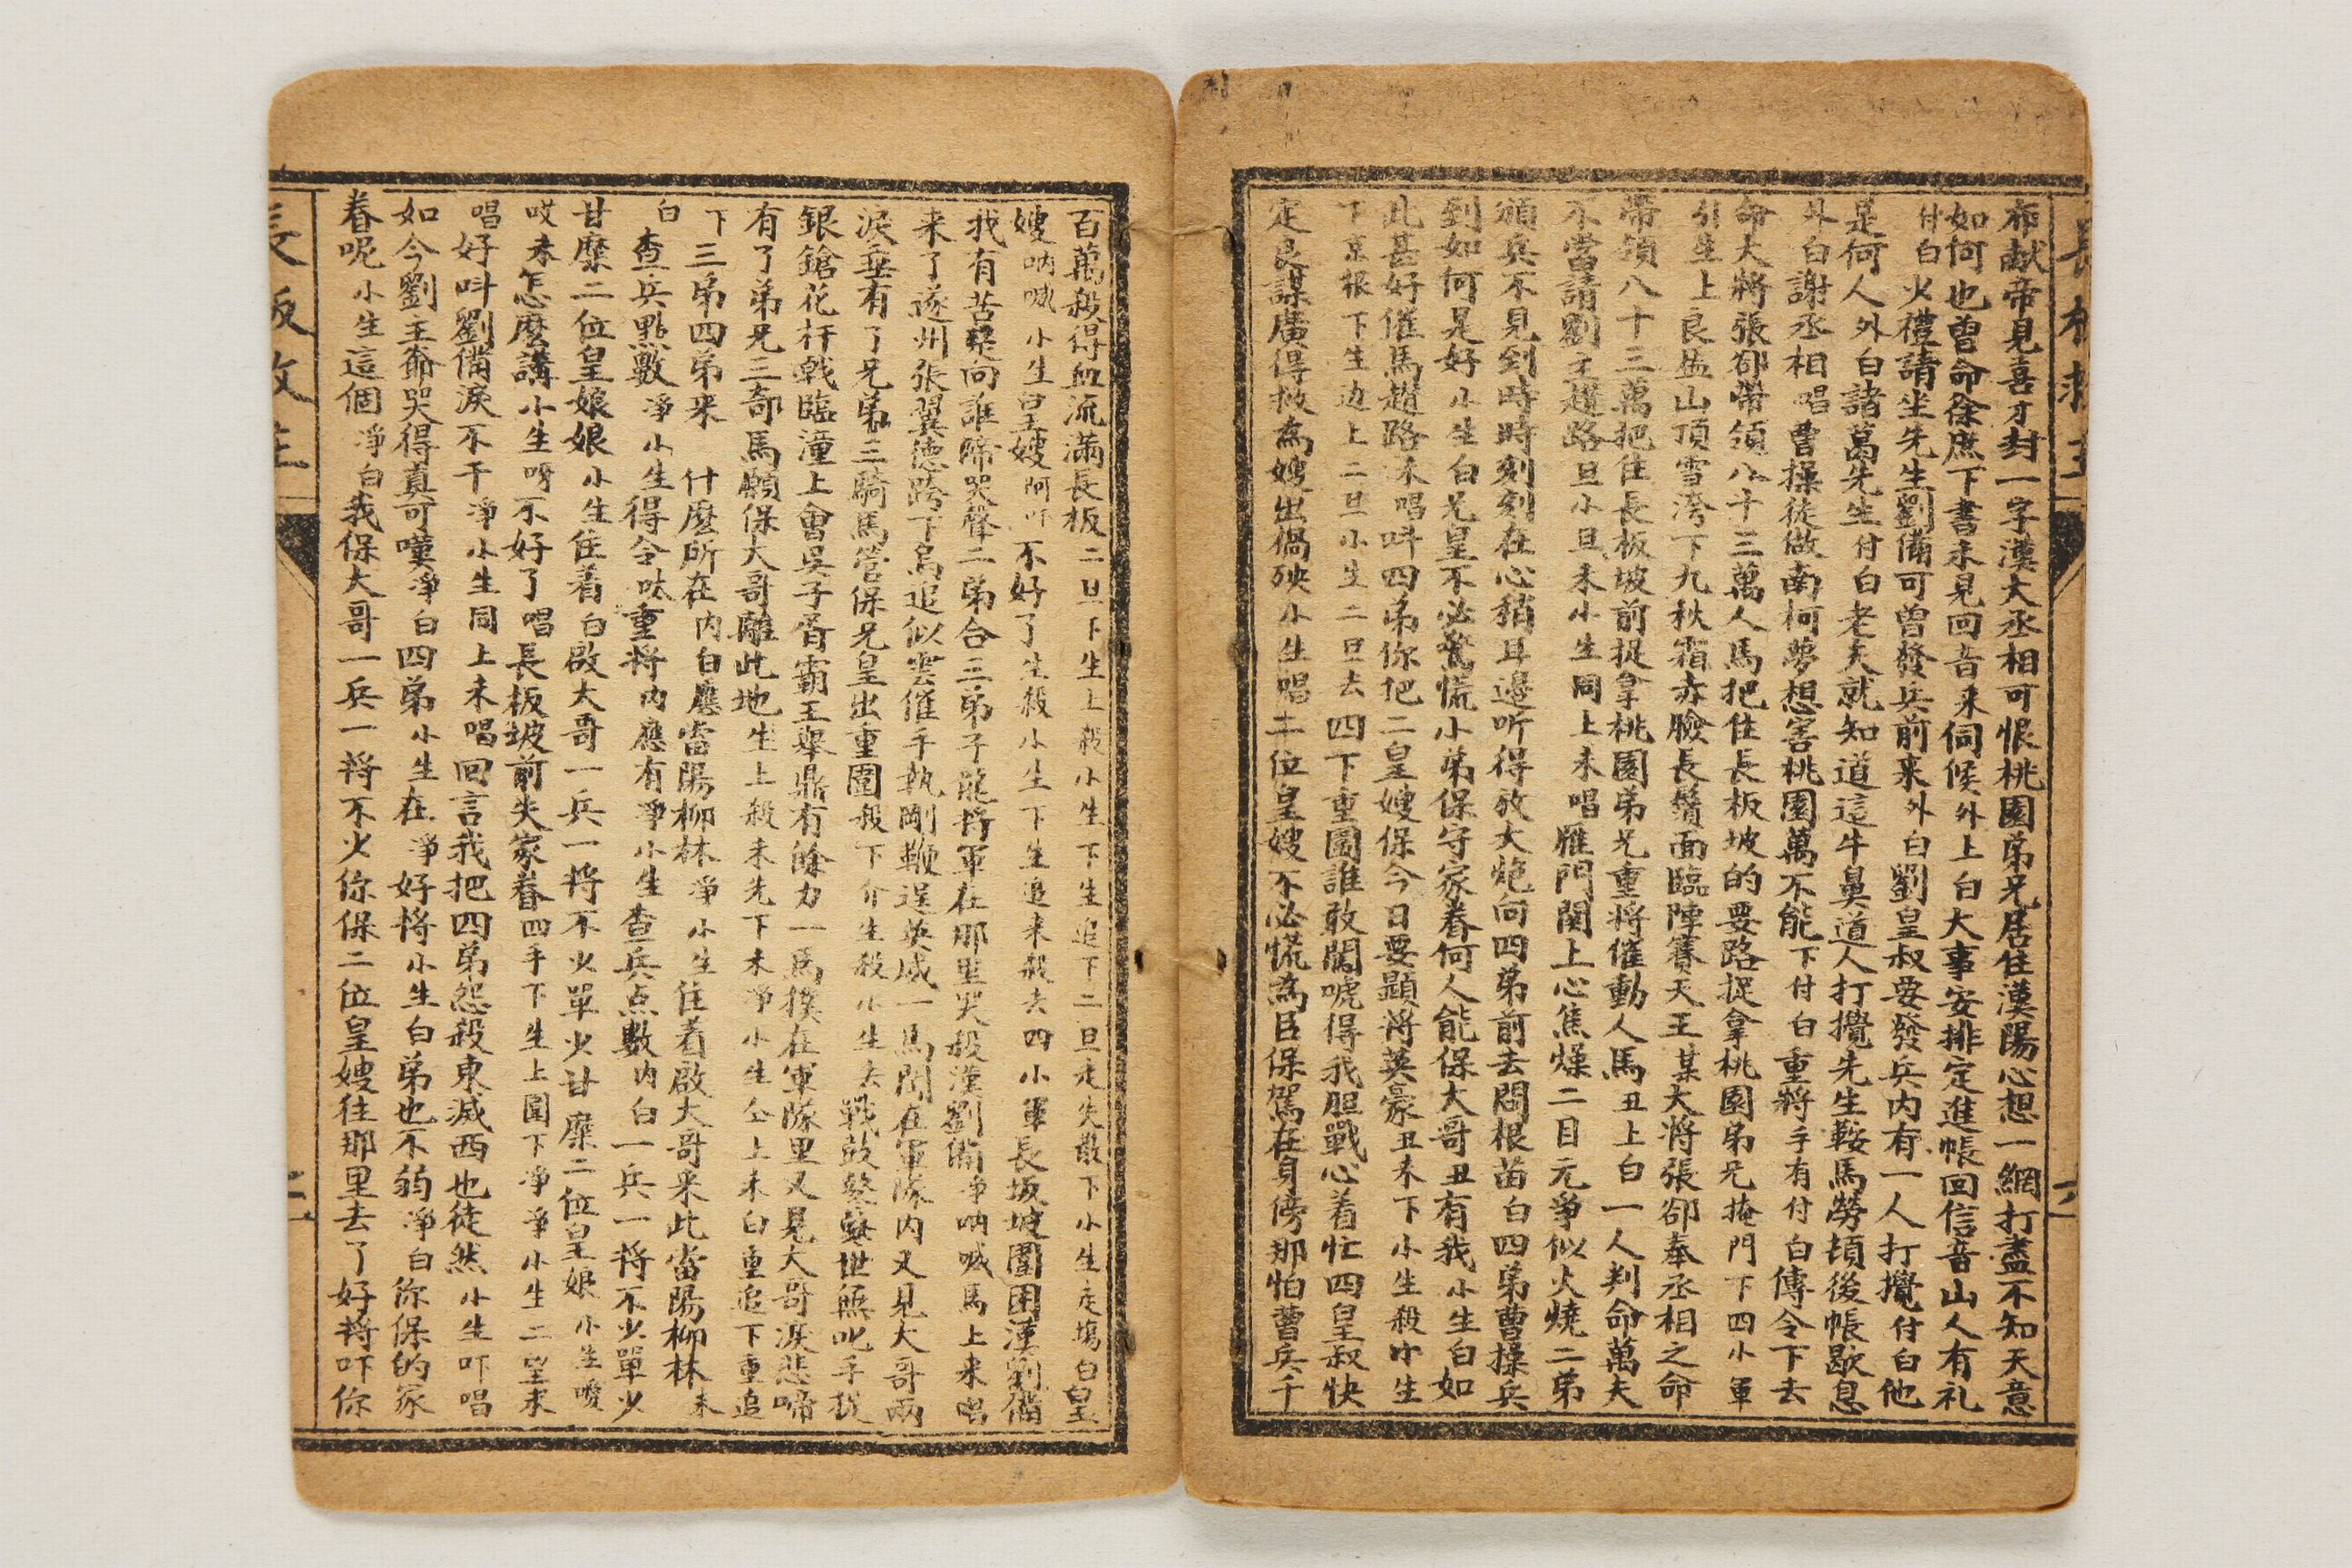 布献帝見喜才封一字漢大丞相可恨桃園弟兄居住漢陽心想一網打盡不知天意
如何也曾命徐庶下書未見回音来伺候外上白大事安排定進帳回信音山人有礼
付白火禮請坐先生劉備可曾發兵前来外白劉皇叔要發兵内有一人打攪付白他
是何人外白諸葛先生付白老夫就知道這牛鼻道人打攪先生鞍馬勞頓後帳歇息
外白謝丞相唱曹操徒做南柯夢想害桃園萬不能下付白重將手有付白傳令下去
命大將張郃帶領八十三萬人馬把住長板坡的要路捉拿桃園弟兄掩門下四小軍
引生上良盔山頂雪湾下九秋霜赤臉長鬚面臨陣賽天王某大將張郃奉丞相之命
帶領八十三萬把住長板坡前捉拿桃園弟兄重将催動人馬丑上白一人判命萬夫
不當請劉主趲路旦小旦末小生同上末唱雁門関上心焦燥二目元爭似火燒二弟
領兵不見到時時刻刻在心稍耳邊听得放大炮向四弟前去問根苗白四弟曹操兵
到如何是好小生白兄皇不必驚慌小弟保守家眷何人能保大哥丑有我小生白如
此甚好催馬趲路末唱呌四弟你把二皇嫂保今日要顕將英豪丑末下小生殺小生
下京根下生边上二旦小生二旦去四下重圍誰敢闖唬得我胆戰心着忙四皇叔快
定良謀廣得救為嫂出禍殃小生唱二位皇嫂不必慌為臣保駕在身傍那怕曹兵千
百萬殺得血流滿長板二旦下生上殺小生下生追下二旦走失散下小生走塲白皇
嫂吶喊小生皇嫂阿吓不好了生殺小生下生追来殺去四小軍長坂坡圍困漢劉備
我有苦楽向誰啼哭聲二弟合三弟子龍将軍在那里哭殺漢劉備净吶喊馬上来唱
来了遂州張翼德跨下烏追似雲催手執剛鞭逞英威一馬闖在軍隊内又見大哥兩
淚垂有了兄弟三騎馬管保兄皇出重圍殺下介生殺小生去戰鼓鼕鼕世無叱手挽
銀鎗花杆戟臨潼上會吳子胥霸王舉鼎有餘力一馬撲在軍隊里又見大哥淚悲啼
有了弟兄三奇馬願保大哥離此地生上殺末先下末净小生仝上末白重追下重追
下三弟四弟来什麼所在内白應當陽柳林净小生住着啟大哥来此當陽柳林末
白查兵點數净小生得令呔重将内應有净小生查兵点數内白一兵一将不少單少
甘糜二位皇娘娘小生住着白啟大哥一兵一将不火單火甘糜二位皇娘小生噯
哎末怎麼講小生呀不好了唱長板坡前失家眷四手下生上圍下净净小生二望来
唱好呌劉備淚不干净小生同上末唱回言我把四弟怨殺東滅西也徒然小生吓唱
如今劉主爺哭得真可嘆净白四弟小生在净好将小生白弟也不弱净白你保的家
眷呢小生這個净白我保大哥一兵一将不火你保二位皇嫂往那里去了好将吓你
長板救主